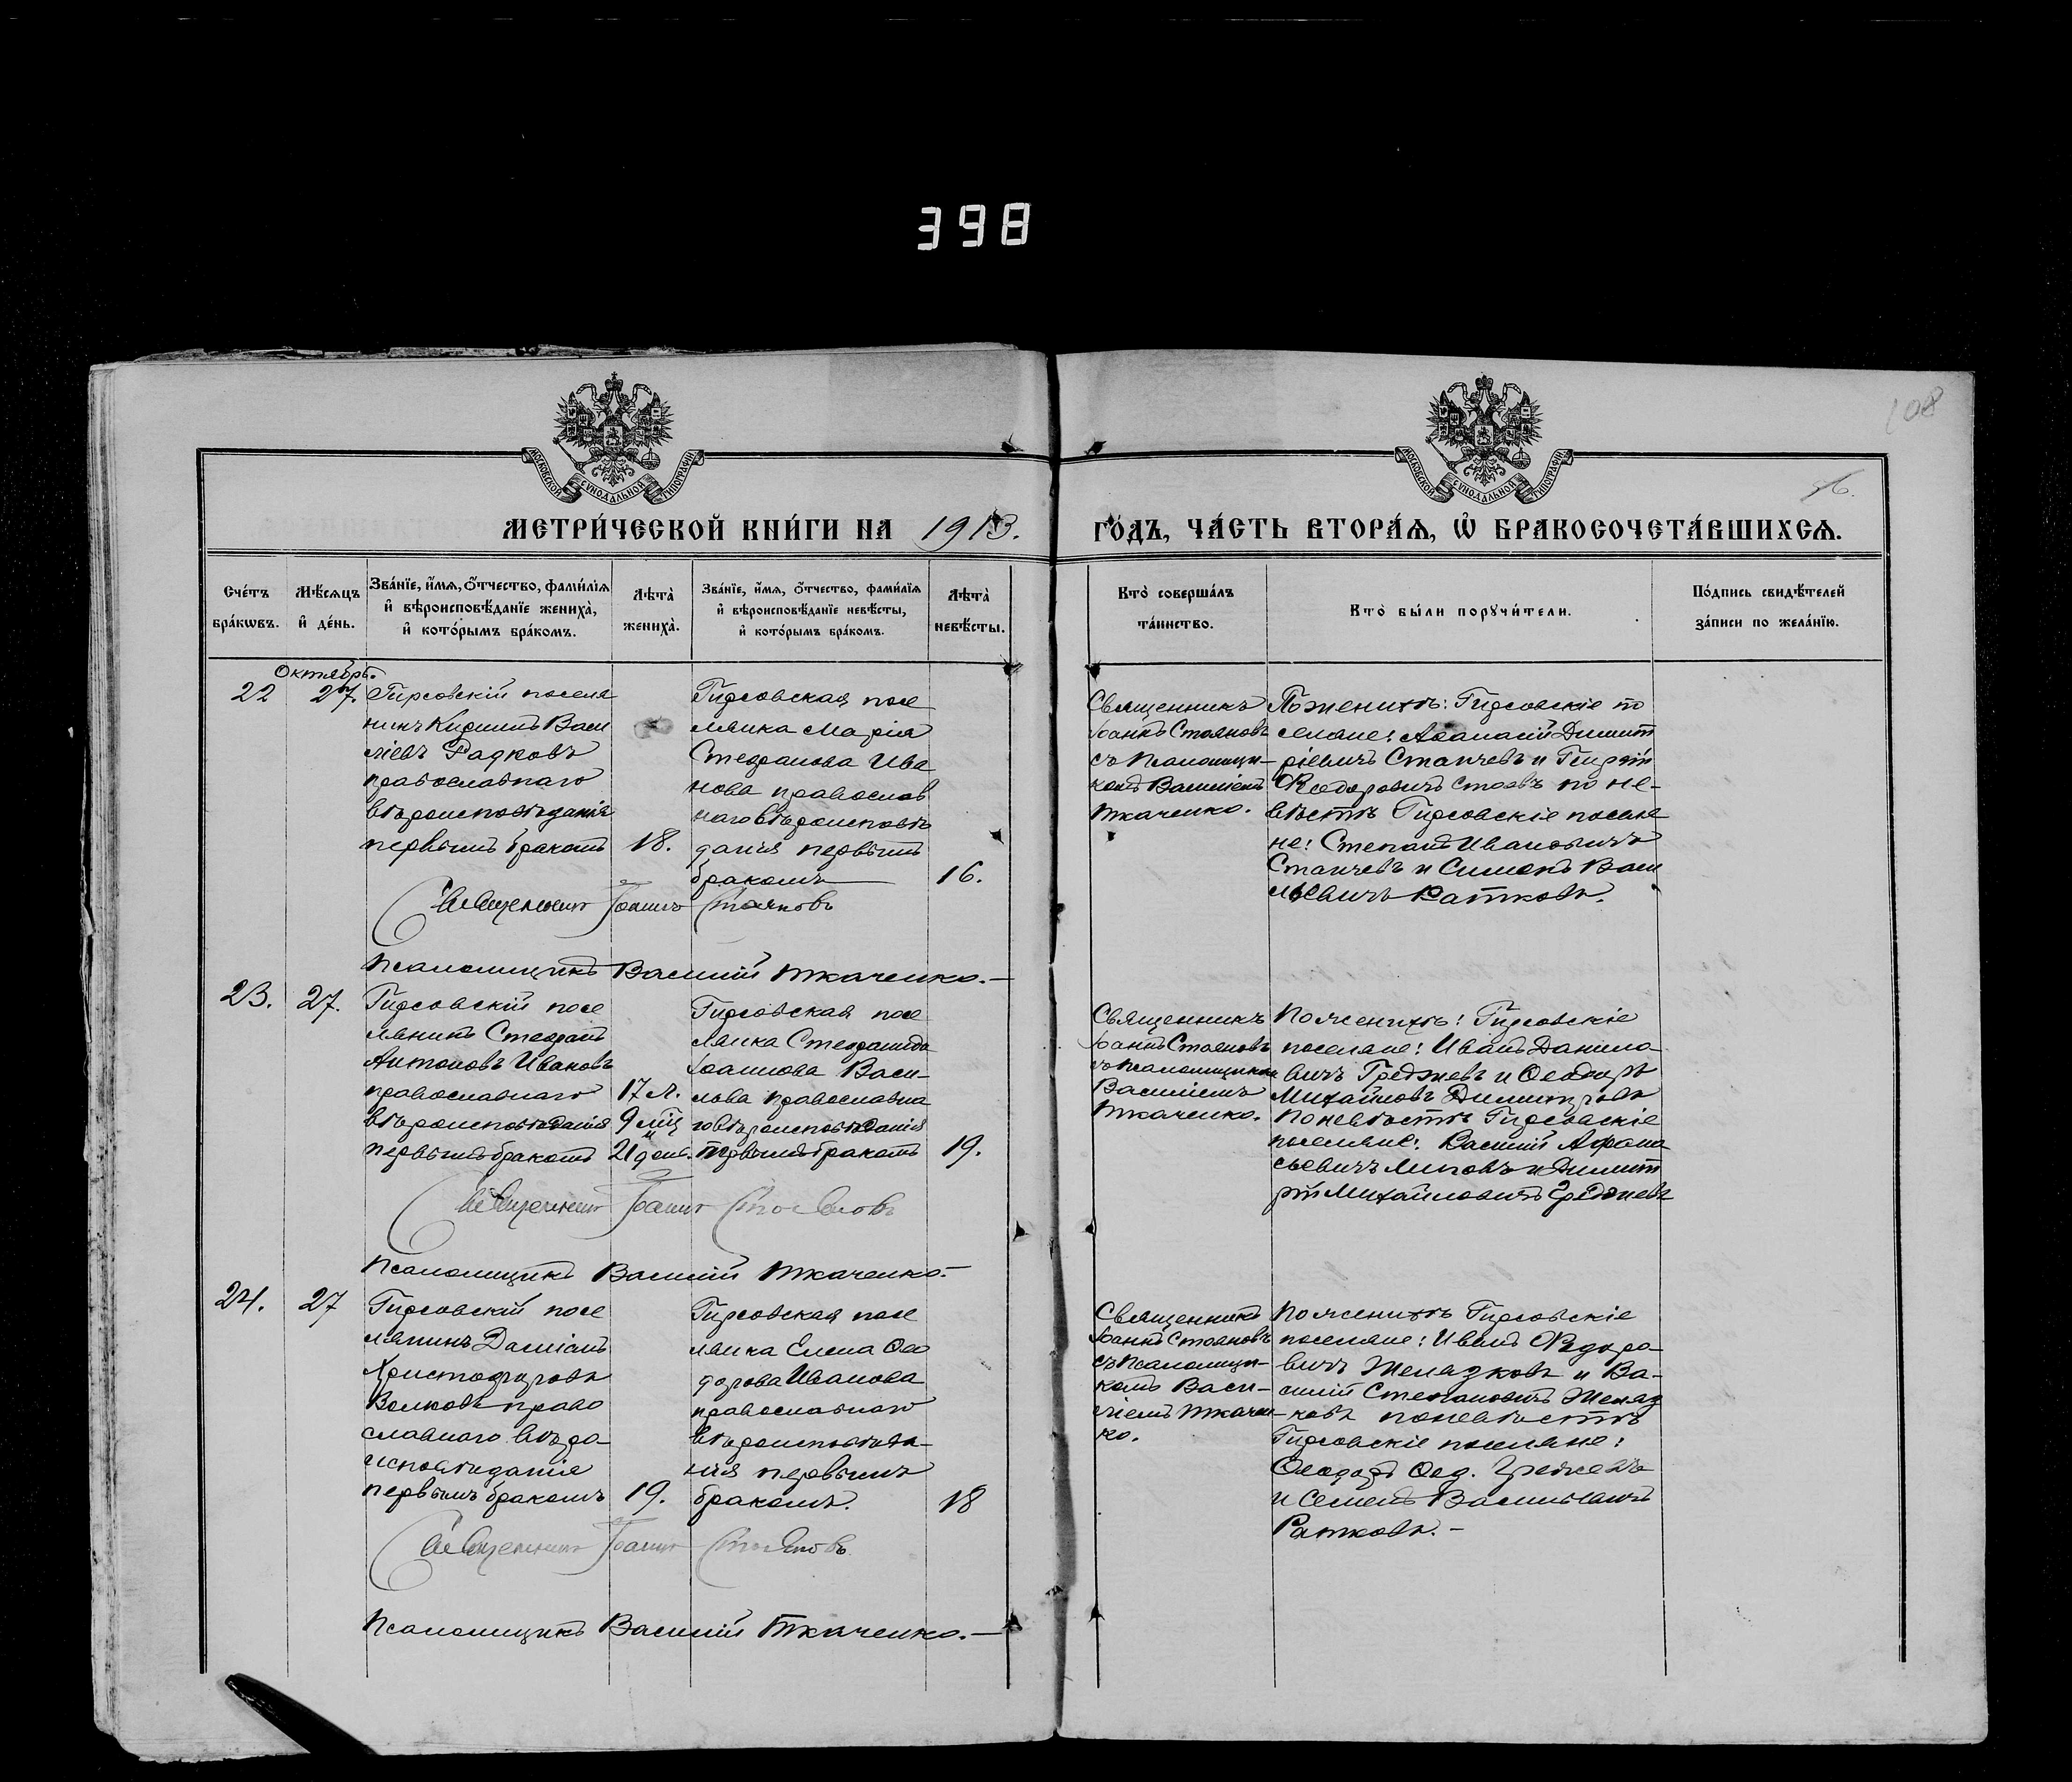 398
108
96.
МОСКОВСКОЙ СѴНОДАЛЬНОЙ ТИПОГРАФІИ
МОСКОВСКОЙ СѴНОДАЛЬНОЙ ТИПОГРАФІИ
МЕТРИ́ЧЕСКОЙ КНИ́ГИ НА 1913.
ГО́ДЪ, ЧА́СТЬ ВТОРА́Ѧ, Ѽ БРАКОСОЧЕТА́ВШИХСѦ.
Сче́тъ
бра́кѡвъ.
Мѣ́сѧцъ
и҆ де́нь.
Зва́нїе, и҆́мѧ, ѻ҆́тчество, фами́лїѧ
и҆ вѣроисповѣ́данїе жениха̀,
и҆ кото́рымъ бра́комъ.
Лѣта̀
жениха̀.
Зва́нїе, и҆́мѧ, ѻ҆́тчество, фами́лїѧ
и҆ вѣроисповѣ́данїе невѣ́сты,
и҆ кото́рымъ бра́комъ.
Лѣта̀
невѣ́сты.
Кто̀ соверша́лъ
та́инство.
Кто̀ бы́ли порꙋчи́тели.
По́дпись свидѣ́телей
за́писи по жела́нїю.
Октябрь.
22
27.
Гирсовскій поселя
нинъ Кириллъ Васи
ліевъ Радковъ
православнаго
вѣроисповѣданія
первымъ бракомъ
18.
Гирсовская посе
лянка Марія
Стефанова Ива
нова православ
наго вѣроисповѣ
данія первымъ
бракомъ
16.
Священникъ
Іоаннъ Стояновъ
съ Псаломщи-
комъ Василіемъ
Ткаченко.
По женихѣ: Гирсовскіе по
селяне: Аѳанасій Димит
ріевичъ Станчевъ и Георгій
Ѳеодоровичъ Стоевъ по не-
вѣстѣ Гирсовскіе поселя
не: Степанъ Ивановичъ
Станчевъ и Симонъ Васи
льевичъ Ратковъ.
Священникъ Іоаннъ Стояновъ
Псаломщикъ Василій Ткаченко.
23.
27.
Гирсовскій посе
лянинъ Стефанъ
Антоновъ Ивановъ
православнаго
вѣроисповѣданія
первымъ бракомъ
17 л.
9 мѣц
21 дня.
Гирсовская посе
лянка Стефанида
Іоаннова Васи-
лова православна
го вѣроисповѣданія
первымъ бракомъ
19.
Священникъ
Іоаннъ Стояновъ
съ Псаломщикомъ
Василіемъ
Ткаченко.
По женихѣ: Гирсовскіе
поселяне: Иванъ Данило
вичъ Греджевъ и Ѳеодоръ
Михайловъ Димитровъ
По невѣстѣ Гирсовскіе
поселяне: Василій Афана
сьевичъ Липовъ и Димит
рій Михайловичъ Греджевъ
Священникъ Іоаннъ Стояновъ
Псаломщикъ Василій Ткаченко.
24.
27
Гирсовскій посе
лянинъ Даміанъ
Христофоровъ
Волковъ право
славнаго вѣро-
исповѣданія
первымъ бракомъ
19.
Гирсовская посе
лянка Елена Ѳео
дорова Иванова
православнаго
вѣроисповѣда-
нія первымъ
бракомъ.
18
Священникъ
Іоаннъ Стояновъ
съ Псаломщи-
комъ Васи-
ліемъ Ткачен-
ко.
По женихѣ Гирсовскіе
поселяне: Иванъ Ѳедоро-
вичъ Желязковъ и Ва-
силій Степановичъ Желяз
ковъ по невѣстѣ
Гирсовскіе поселяне:
Ѳеодоръ Ѳед. Греджевъ
и Семенъ Васильевичъ
Ратковъ.
Священникъ Іоаннъ Стояновъ
Псаломщикъ Василій Ткаченко.